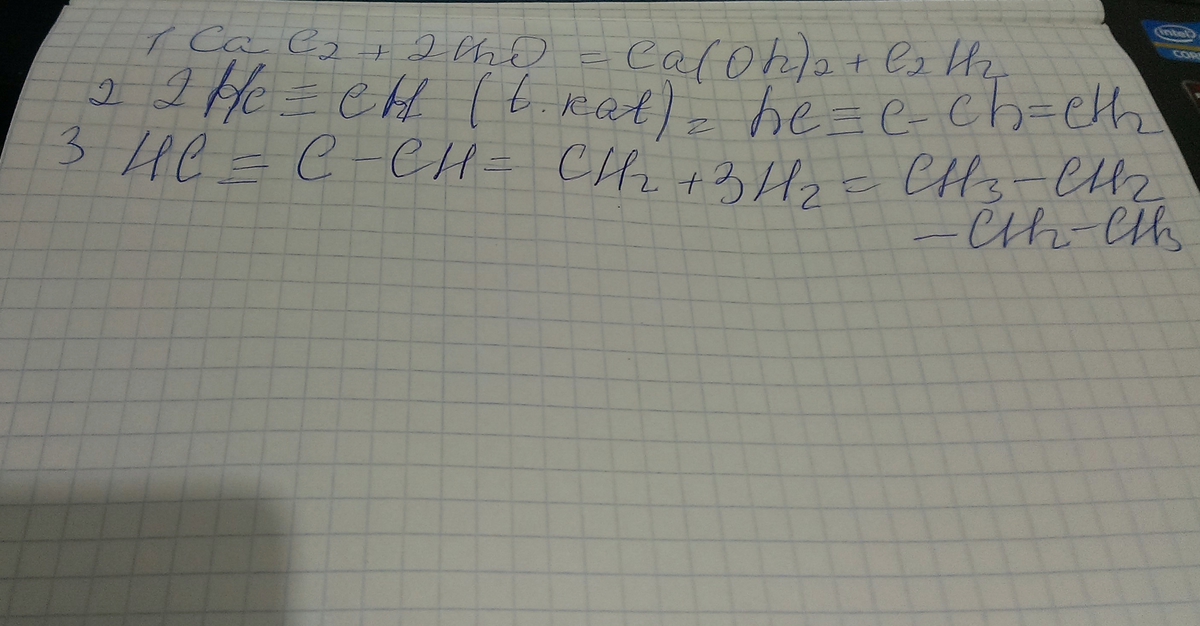 1 CaC2 + 2H2O = Ca(Oh)2 + C2H2
2 2HC ≡ CH (t. kat) = hC ≡ C - Ch = CH2
3 HC ≡ C - CH = CH2 + 3H2 = CH3 - CH2
- CH2 - CH3
intel